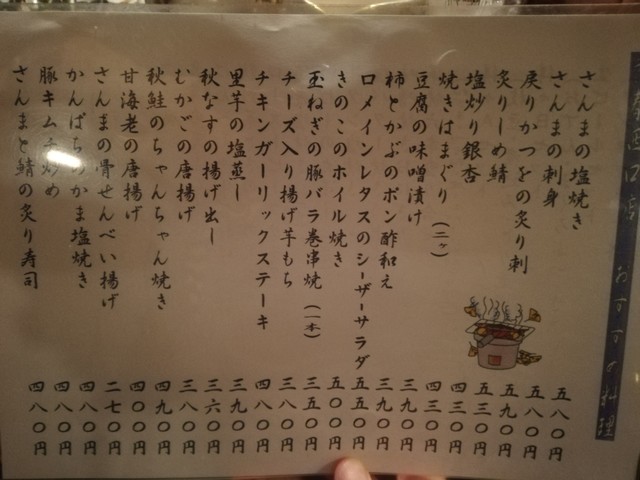 おすすめ料理
さんまの塩焼き 五八〇円
さんまの刺身 五八〇円
戻りかつをの炙り刺 五九〇円
炙りしめ鯖 五三〇円
塩炒り銀杏 四三〇円
焼きはまぐり（二ヶ） 四三〇円
豆腐の味噌漬け 三九〇円
柿とかぶのポン酢和え 三九〇円
ロメインレタスのシーザーサラダ 五五〇円
きのこのホイル焼き 五〇〇円
玉ねぎの豚バラ巻串焼（一本） 三五〇円
チーズ入り揚げ芋もち 三八〇円
チキンガーリックステーキ 四八〇円
里芋の塩蒸し 三九〇円
秋なすの揚げ出し 三六〇円
むかごの唐揚げ 三八〇円
秋鮭のちゃんちゃん焼き 四九〇円
甘海老の唐揚げ 四〇〇円
さんまの骨せんべい揚げ 二七〇円
かんぱちのかま塩焼き 四八〇円
豚キムチ炒め 四八〇円
さんまと鯖の炙り寿司 四八〇円